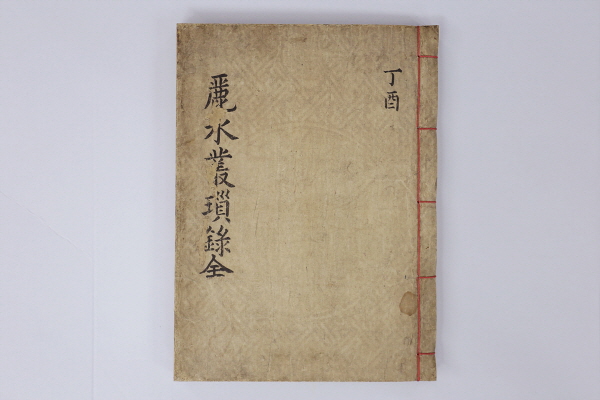 丁酉
麗水叢瑣錄全